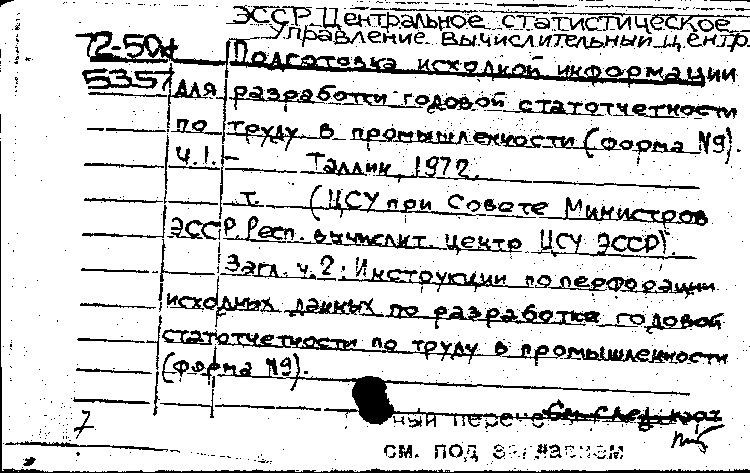 ЭССР Центральное статистическое
Управление. Вычислительный центр.
72-504
5357
Подготовка исходной информации
для разработки годовой статотчетности
по труду в промышленности (форма №9).
Ч.1.- Таллин, 1972.
т. (ЦСУ при Совете Министров
ЭССР. Респ. вычислит. центр ЦСУ ЭССР).
Загл. ч.2: Инструкции по перфорации
исходных данных по разработке годовой
статотчетности по труду в промышленности
(форма №9).
См. след. карт
7
ный перече
см. под заглавием